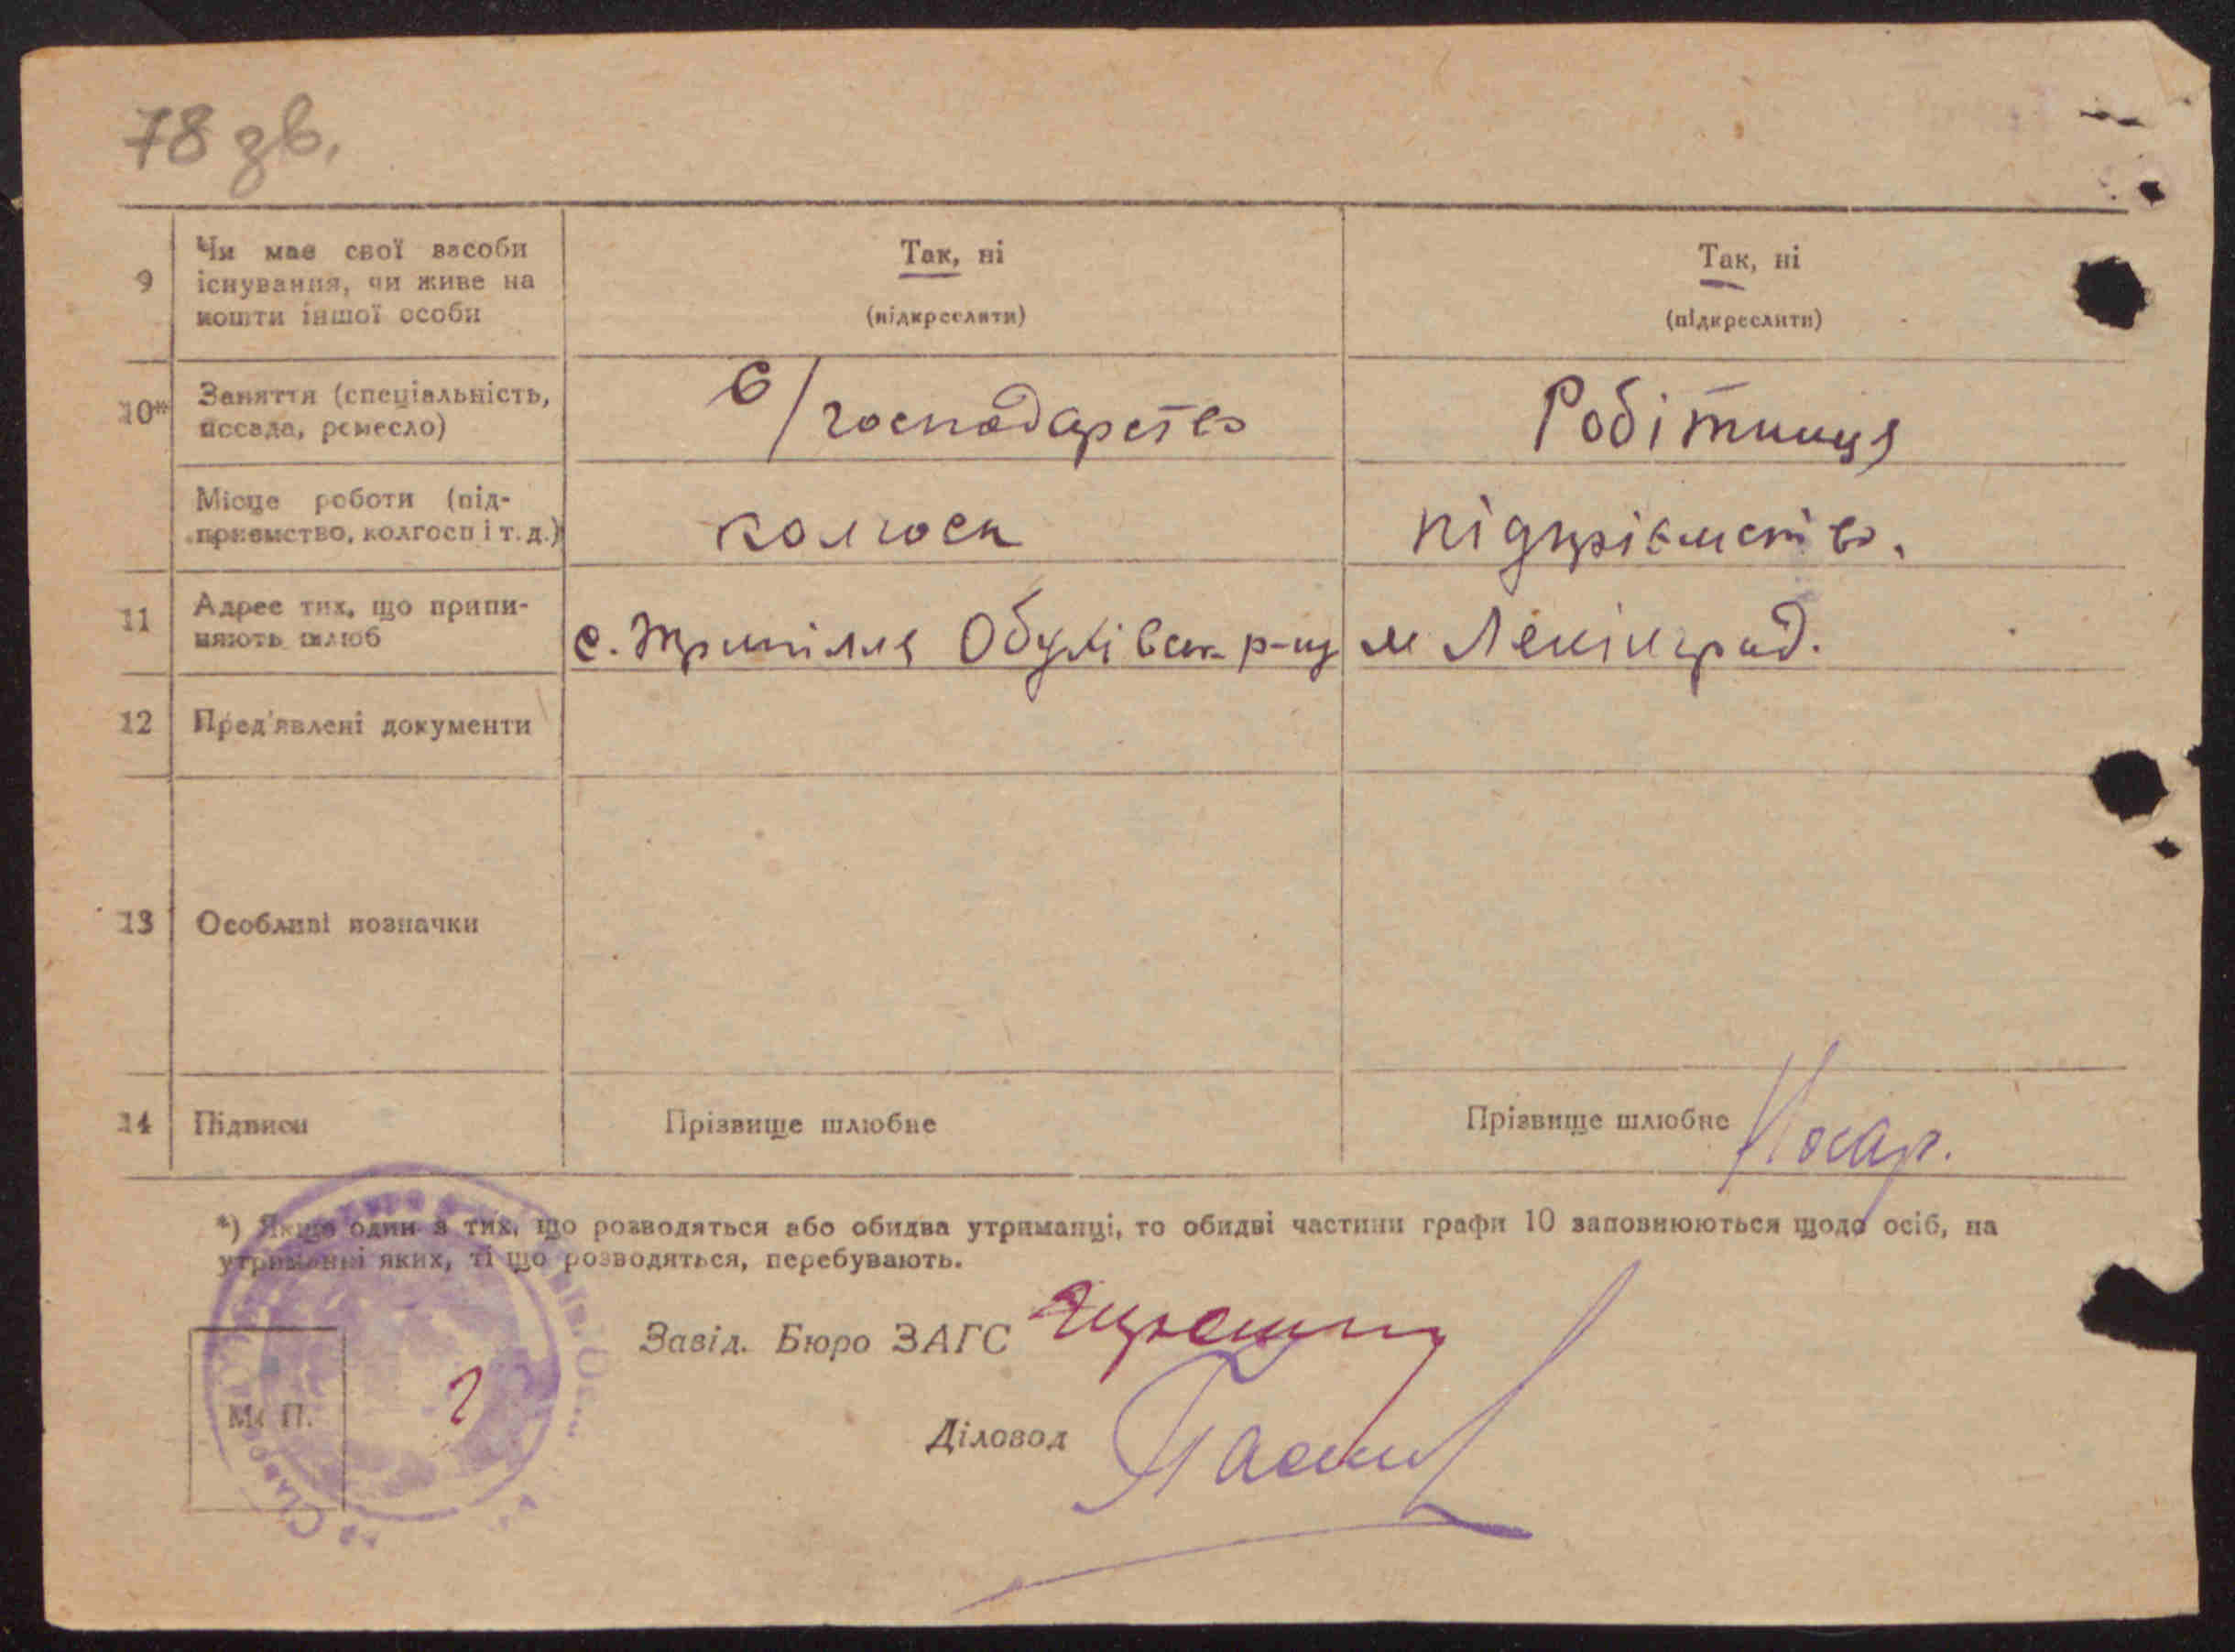 78 зв.
9
Чи має свої засоби
існування, чи живе на
кошти іншої особи
Так, ні
(підкреслити)
Так, ні
(підкреслити)
10*
Заняття (спеціальність,
посада, ремесло)
С/господарство
Робітниця
Місце роботи (під-
приємство, колгосп і т. д.)
колгосп
підприємство.
11
Адрес тих, що припи-
няють шлюб
с. Трипілля Обухівськ р-ну
м Ленінград.
12
Пред'явлені документи
13
Особливі позначки
14
Підписи
Прізвище шлюбне
Прізвище шлюбне
*) Якщо один з тих, що розводяться або обидва утриманці, то обидві частини графи 10 заповнюються щодо осіб, на
утриманні яких, ті що розводяться, перебувають.
Завід. Бюро ЗАГС
М. П.
Діловод